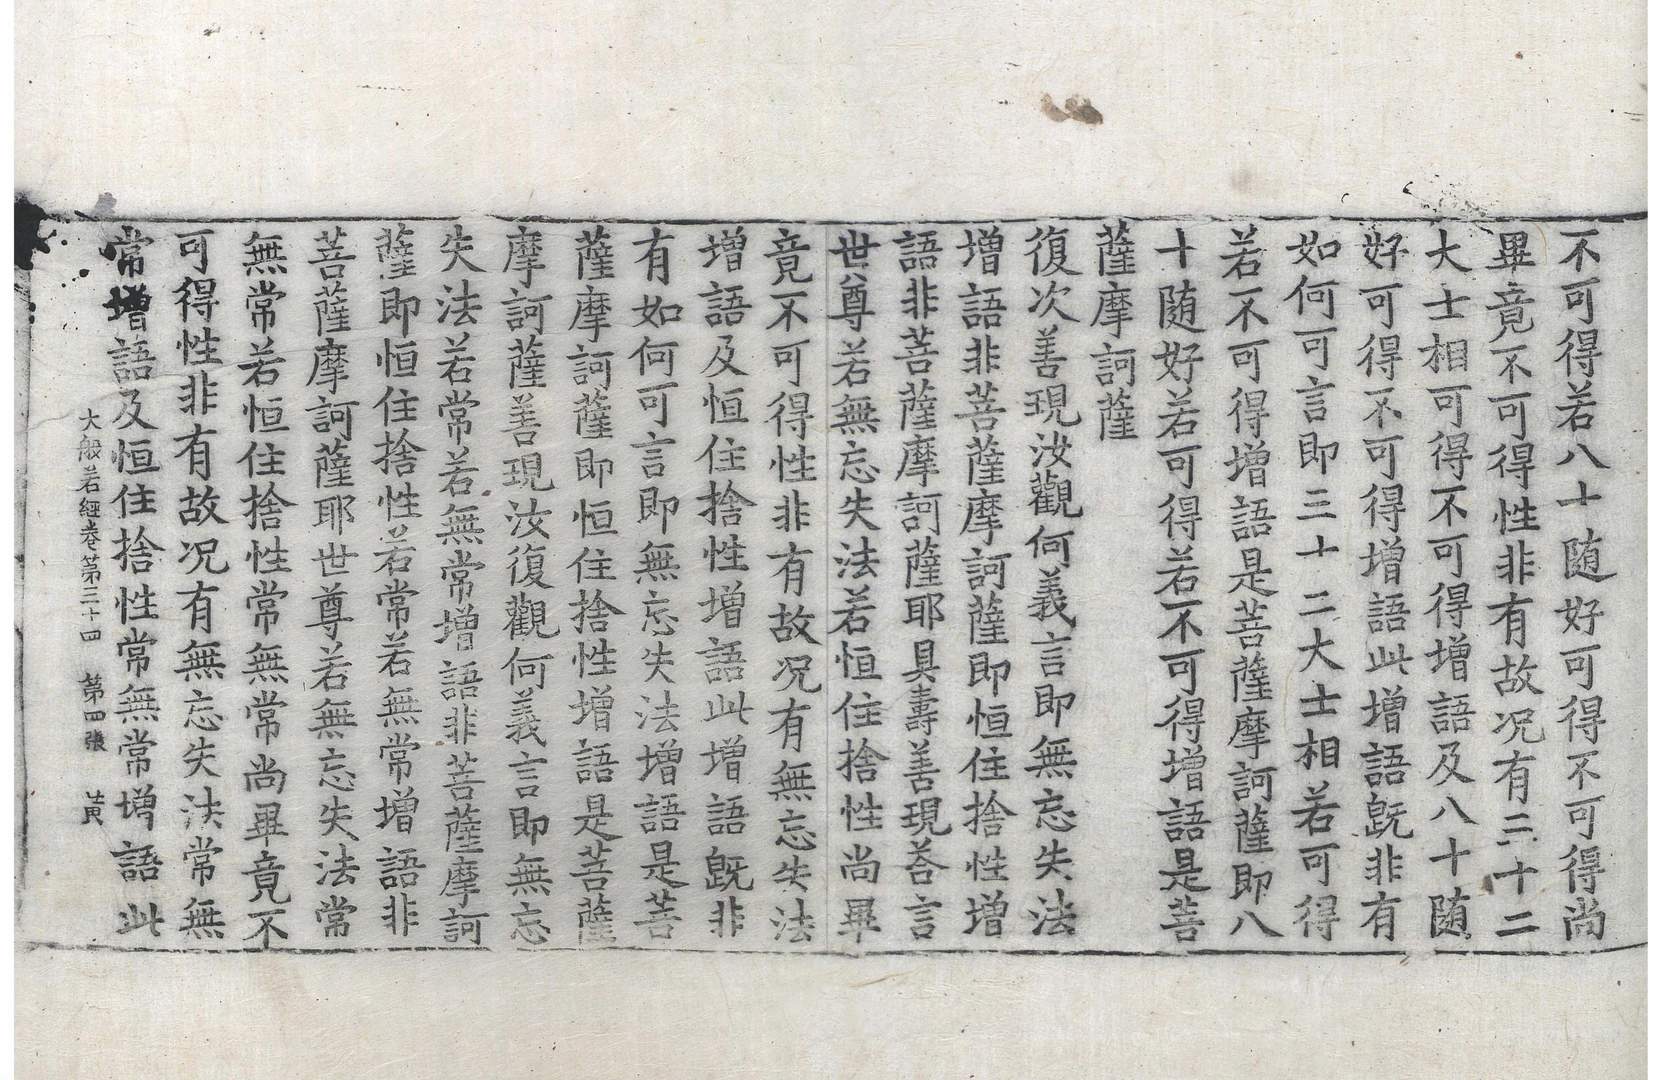 不可得若八十随好可得不可得尚
畢竟不可得性非有故况有三十二
大士相可得不可得増語及八十随
好可得不可得増語此増語旣非有
如何可言即三十二大士相若可得
若不可得増語是菩薩摩訶薩即八
十随好若可得若不可得増語是菩
薩摩訶薩
復次善現汝觀何義言即無忘失法
増語非菩薩摩訶薩即恒住捨性増
語非菩薩摩訶薩耶具壽善現荅言
世尊若無忘失法若恒住捨性尚畢
竟不可得性非有故况有無忘失法
増語及恒住捨性増語此増語旣非
有如何可言即無忘失法増語是菩
薩摩訶薩即恒住捨性増語是菩薩
摩訶薩善現汝復觀何義言即無忘
失法若常若無常増語非菩薩摩訶
薩即恒住捨性若常若無常増語非
菩薩摩訶薩耶世尊若無忘失法常
無常若恒住捨性常無常尚畢竟不
可得性非有故况有無忘失法常無
常増語及恒住捨性常無常増語此
大般若經卷第三十四　第四張　黄